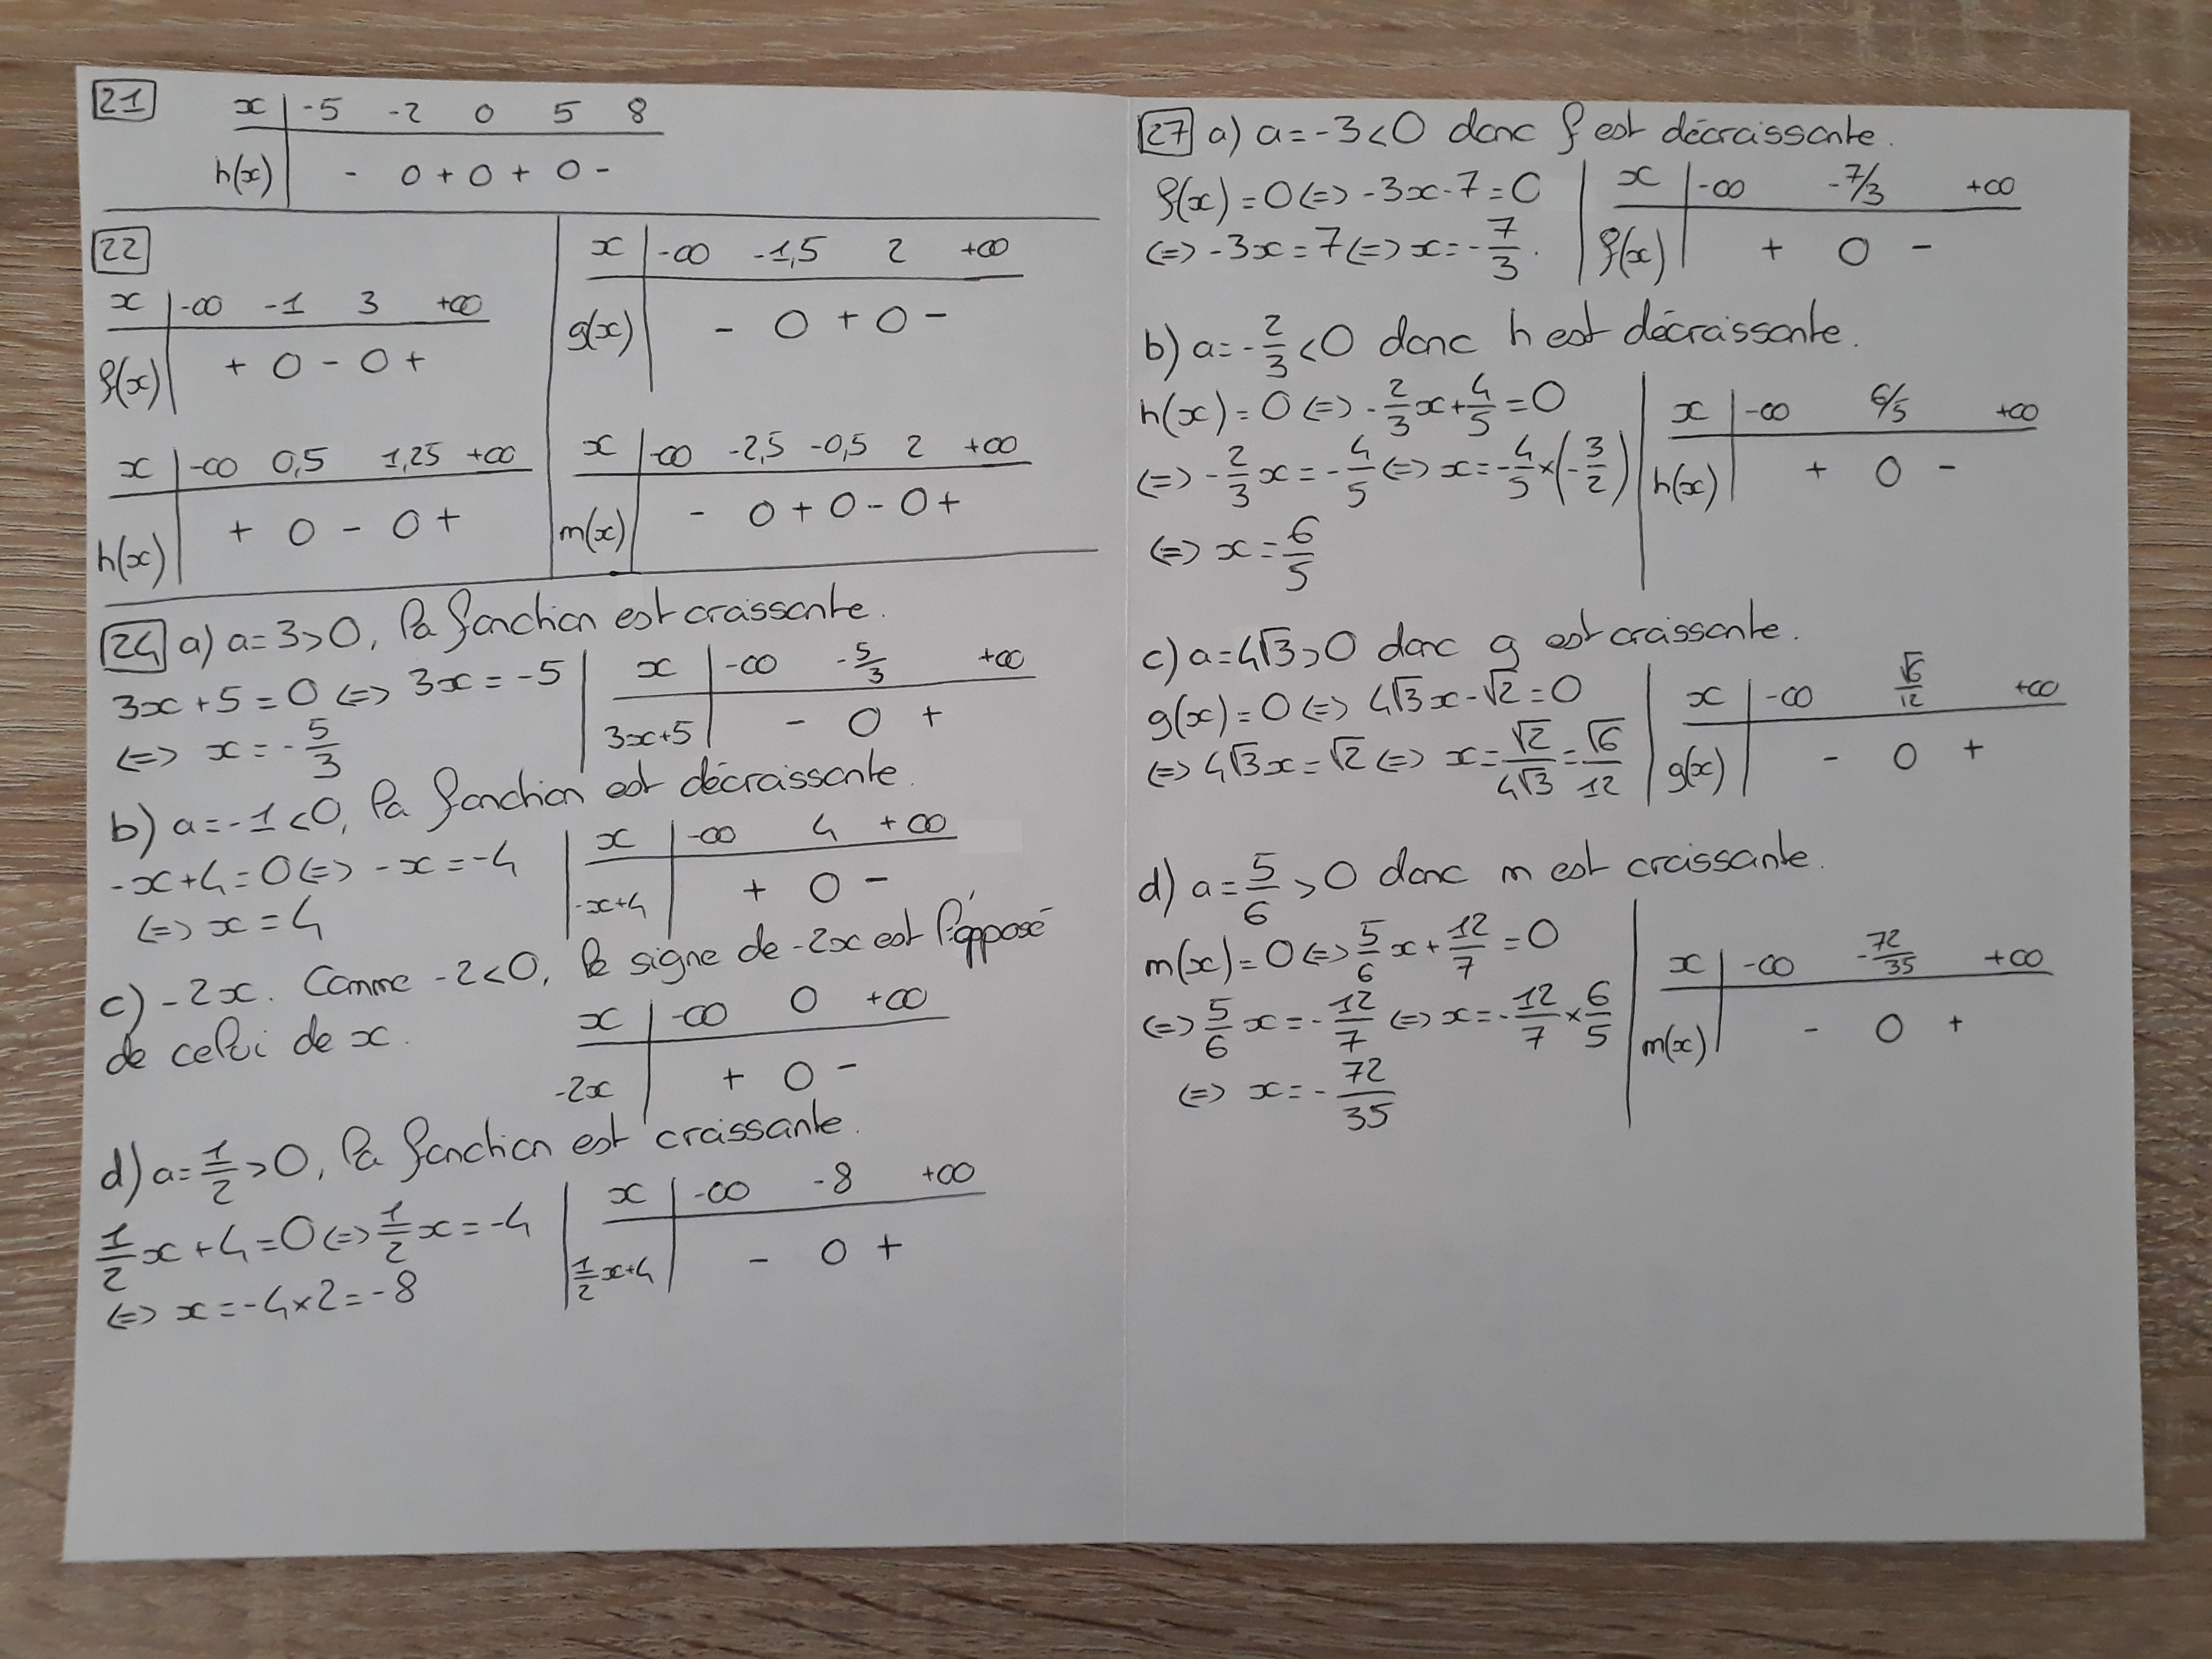 21
x | -5 -2 0 5 8
h(x) | - 0 + 0 + 0 -
22
x | -∞ -1 3 +∞
f(x) | + 0 - 0 +
x | -∞ -1,5 2 +∞
g(x) | - 0 + 0 -
x | -∞ 0,5 1,25 +∞
h(x) | + 0 - 0 +
x | -∞ -2,5 -0,5 2 +∞
m(x) | - 0 + 0 - 0 +
24 a) a = 3 > 0, la fonction est croissante.
3x + 5 = 0 (=) 3x = -5
(=) x = -5/3
x | -∞ -5/3 +∞
3x+5 | - 0 +
b) a = -1 < 0, la fonction est décroissante.
-x + 4 = 0 (=) -x = -4
(=) x = 4
x | -∞ 4 +∞
-x+4 | + 0 -
c) -2x. Comme -2 < 0, le signe de -2x est l'opposé
de celui de x.
x | -∞ 0 +∞
-2x | + 0 -
d) a = 1/2 > 0, la fonction est croissante.
1/2 x + 4 = 0 (=) 1/2 x = -4
(=) x = -4 × 2 = -8
x | -∞ -8 +∞
1/2 x+4 | - 0 +
27 a) a = -3 < 0 donc f est décroissante.
f(x) = 0 (=) -3x - 7 = 0
(=) -3x = 7 (=) x = -7/3.
x | -∞ -7/3 +∞
f(x) | + 0 -
b) a = -2/3 < 0 donc h est décroissante.
h(x) = 0 (=) -2/3 x + 4/5 = 0
(=) -2/3 x = -4/5 (=) x = -4/5 × (-3/2)
(=) x = 6/5
x | -∞ 6/5 +∞
h(x) | + 0 -
c) a = 4√3 > 0 donc g est croissante.
g(x) = 0 (=) 4√3 x - √2 = 0
(=) 4√3 x = √2 (=) x = √2/4√3 = √6/12
x | -∞ √6/12 +∞
g(x) | - 0 +
d) a = 5/6 > 0 donc m est croissante.
m(x) = 0 (=) 5/6 x + 12/7 = 0
(=) 5/6 x = -12/7 (=) x = -12/7 × 6/5
(=) x = -72/35
x | -∞ -72/35 +∞
m(x) | - 0 +